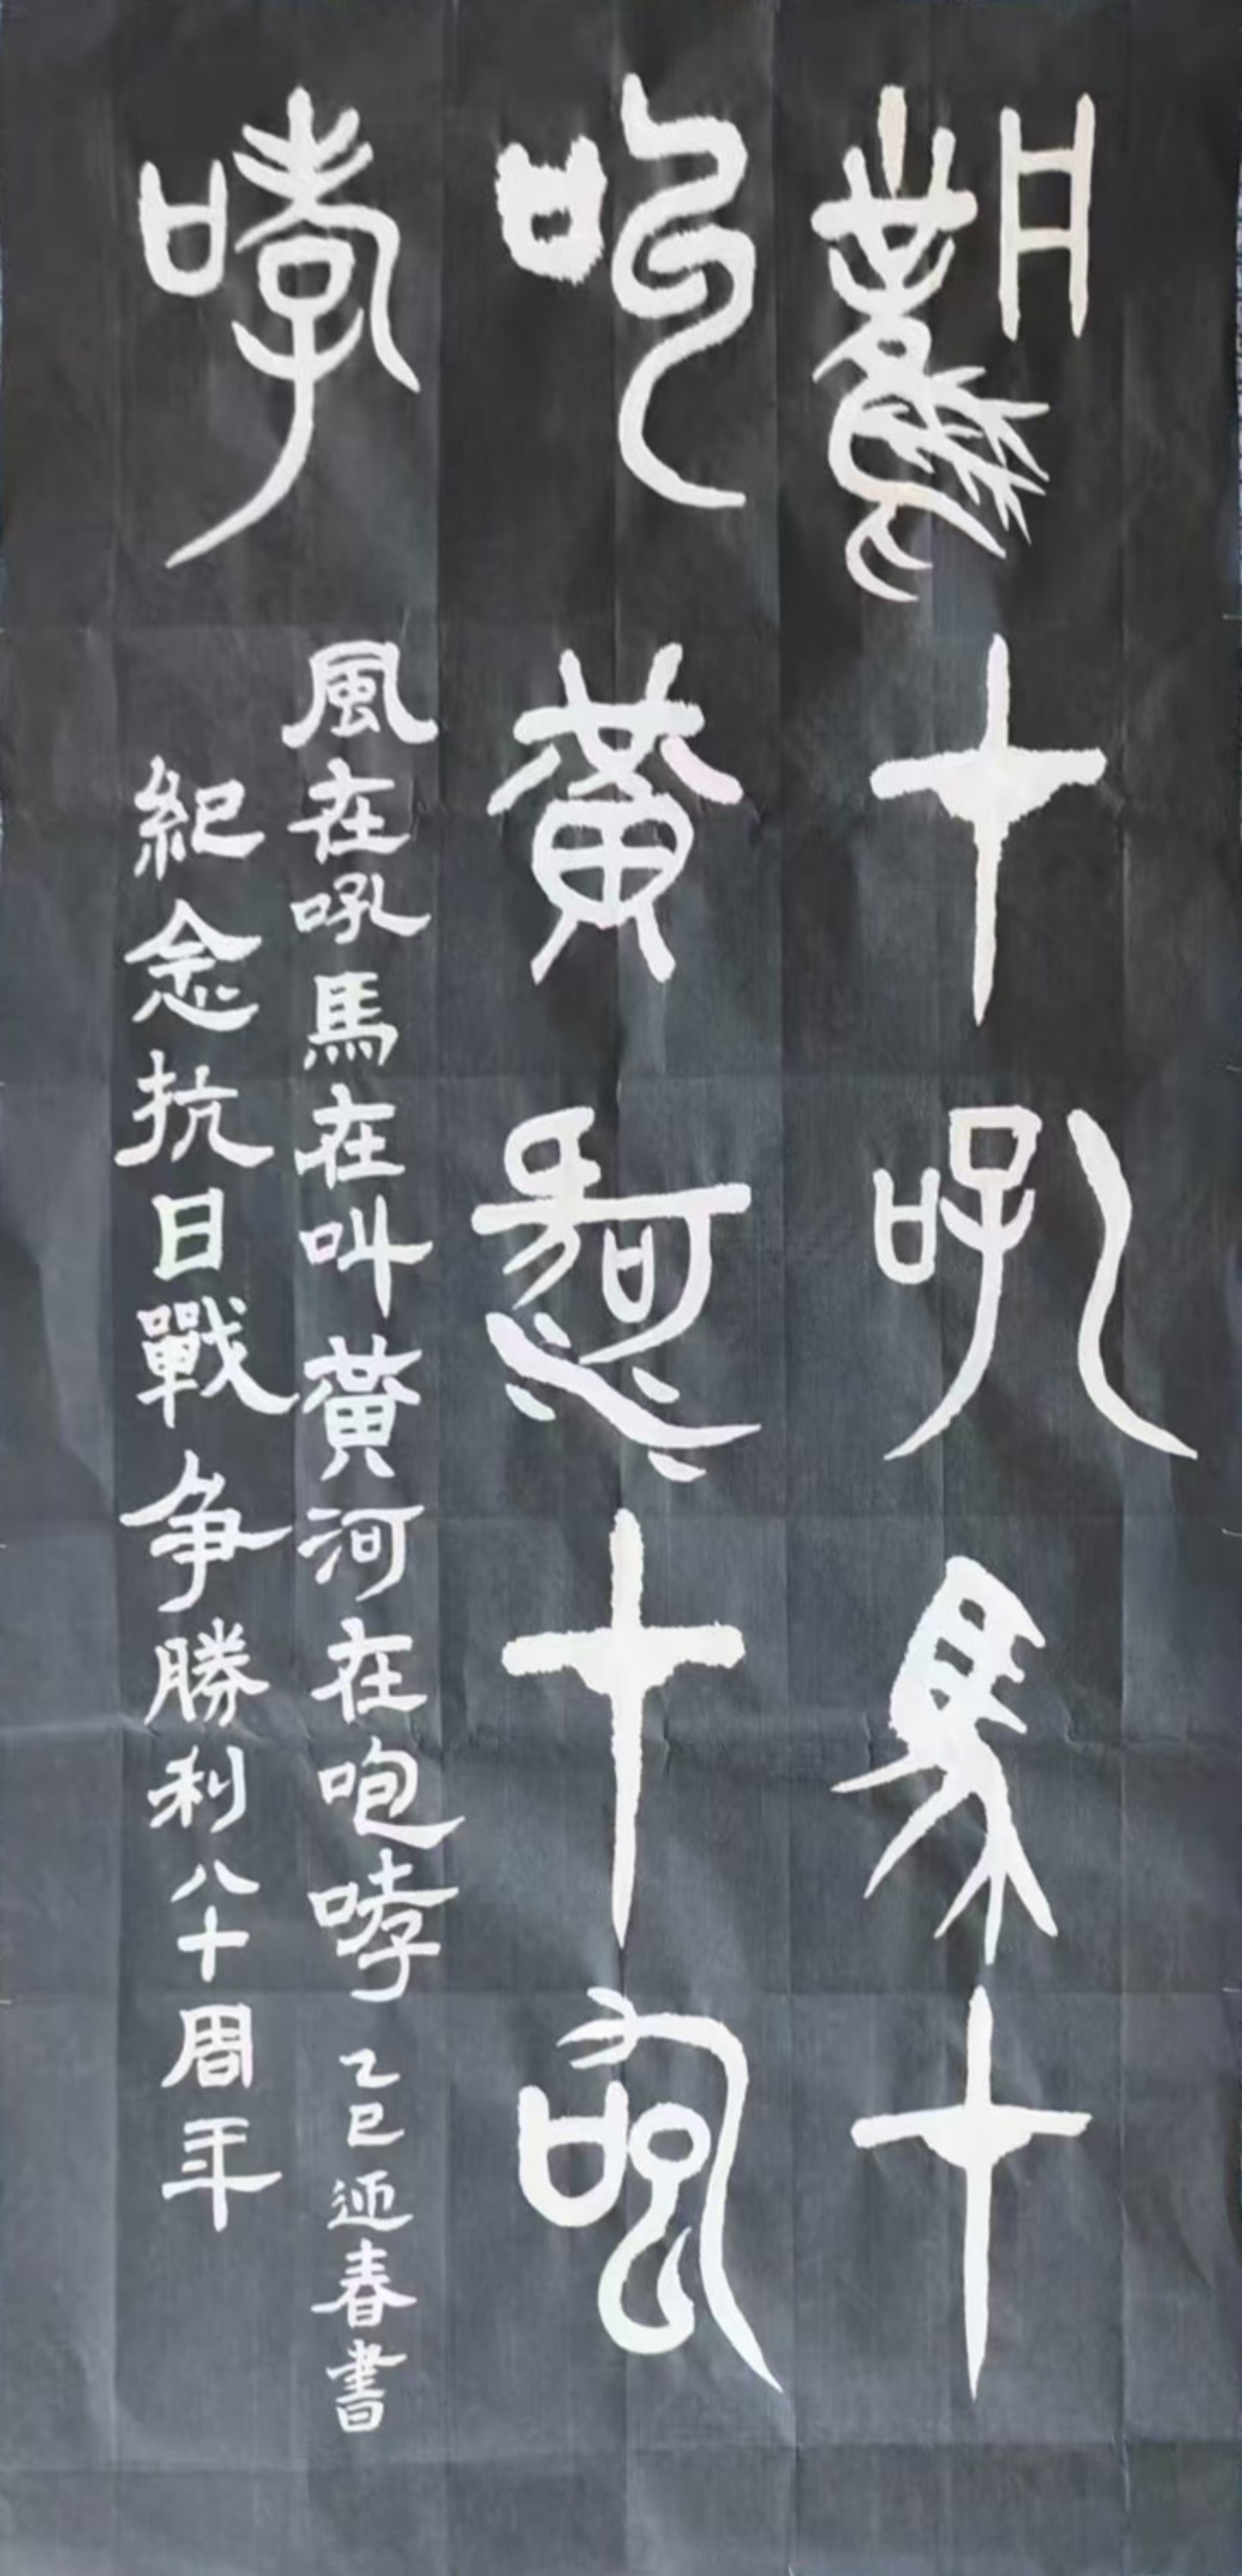 風在吼馬在
叫黃河在咆
哮
風在吼馬在叫黃河在咆哮 乙巳迎春書
紀念抗日戰争勝利八十周年